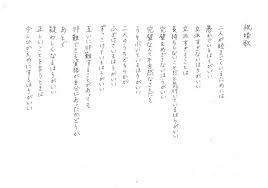 祝婚歌
二人が睦まじくいるためには
愚かでいるほうがいい
立派すぎないほうがいい
立派すぎることは
長持ちしないことだと気付いているほうがいい
完璧をめざさないほうがいい
完璧なんて不自然なことだと
うそぶいているほうがいい
二人のうちどちらかが
ふざけているほうがいい
ずっこけているほうがいい
互いに非難することがあっても
非難できる資格が自分にあったかどうか
あとで
疑わしくなるほうがいい
正しいことを言うときは
少しひかえめにするほうがいい